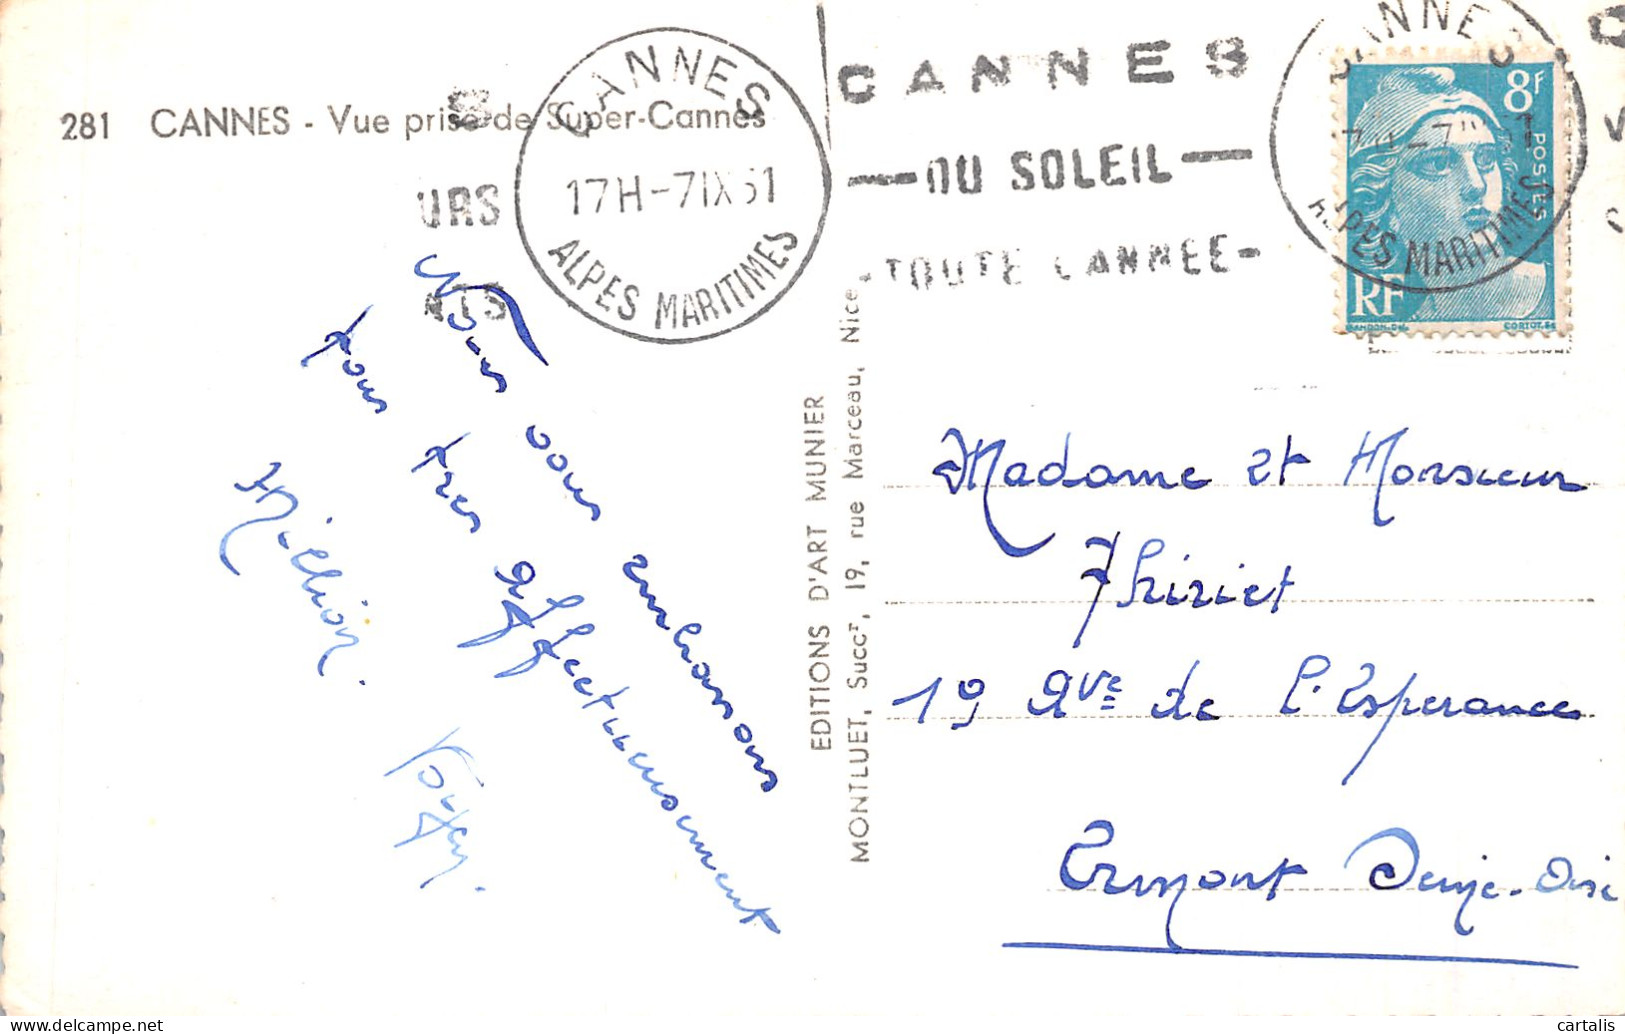 281 CANNES - Vue prise de Super-Cannes
CANNES
17H-7IX51
ALPES MARITIMES
URS
NTS
CANNES
DU SOLEIL
TOUTE L'ANNEE
CANNES
ALPES MARITIMES
8F
POSTES
RF
GANDON.Del.
CORTOT.Sc
Nous vous embrassons
tous très affectueusement
EDITIONS D'ART MUNIER
MONTLUET, Succr, 19, rue Marceau, Nice
Madame et Monsieur
Thiriet
19 Ave de l'Esperance
Ermont Seine-Oise
cartalis